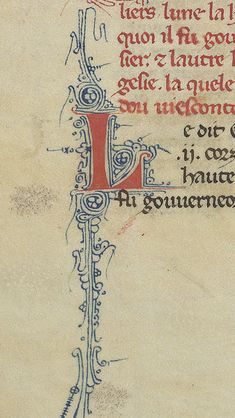 liers lune la h
quoi il fu gou
sier. ⁊ lautre l
gesie. la quele
dou viesconte
L
e dit
.ij. cors
haute
fu gouverneo